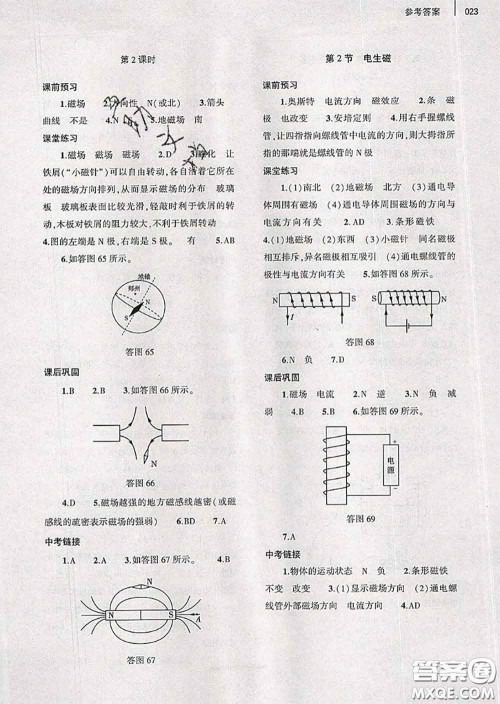 参考答案 023
第2课时
课前预习
1.磁场 2.方向性 N(或北) 3.箭头
曲线 不是 4.N 5.地磁场 南
课堂练习
1.磁场 磁场 磁场 2.D 3.磁化 让
铁屑(“小磁针”)可以自由转动,各自沿着它所在
处的磁场方向排列,从而显示磁场的分布 玻璃
板 玻璃板表面比较光滑,轻敲时利于铁屑的转
动,木板对铁屑的阻力较大,不利于铁屑转动
4.图的左端是N极,右端是S极。 有 5.AB
6.如答图65所示。
地轴
郑州
N
S
答图65
课后巩固
1.B 2.B 3.如答图66所示。
N
答图66
4.D 5.磁场越强的地方磁感线越密(或磁
感线的疏密表示磁场的强弱) 6.BD 7.A
中考链接
1.B 2.A 3.如答图67所示。 4.B
N
N S
A
答图67
第2节 电生磁
课前预习
1.奥斯特 电流方向 磁效应 2.条 磁
极 电流方向 3.安培定则 4.用右手握螺线
管,让四指指向螺线管中电流的方向,则大拇指所
指的那端就是螺线管的N极
课堂练习
1.(1)南北 (2)地磁场 北方 (3)通电导
体周围有磁场 (4)通电导体周围的磁场的方向
与电流方向有关 2.A 3.条形磁铁
4.(1)地磁场 (2)东西 (3)小磁针 同名磁极
相互排斥,异名磁极相互吸引 (4)通电螺线管的
极性与电流方向有关 5.如答图68所示。
N S N S
I
答图68
6.N 负 7.D
课后巩固
1.磁场 电流 2.N 逆 3.N 负 减
弱 4.B 5.C 6.如答图69所示。
电源
答图69
7.A
中考链接
1.物体的运动状态 N 负 2.条形磁铁
不变 改变 3.(1)显示磁场方向 (2)通电螺
线管外部磁场方向 电流方向 4.AD
答案圈
MXQE.COM